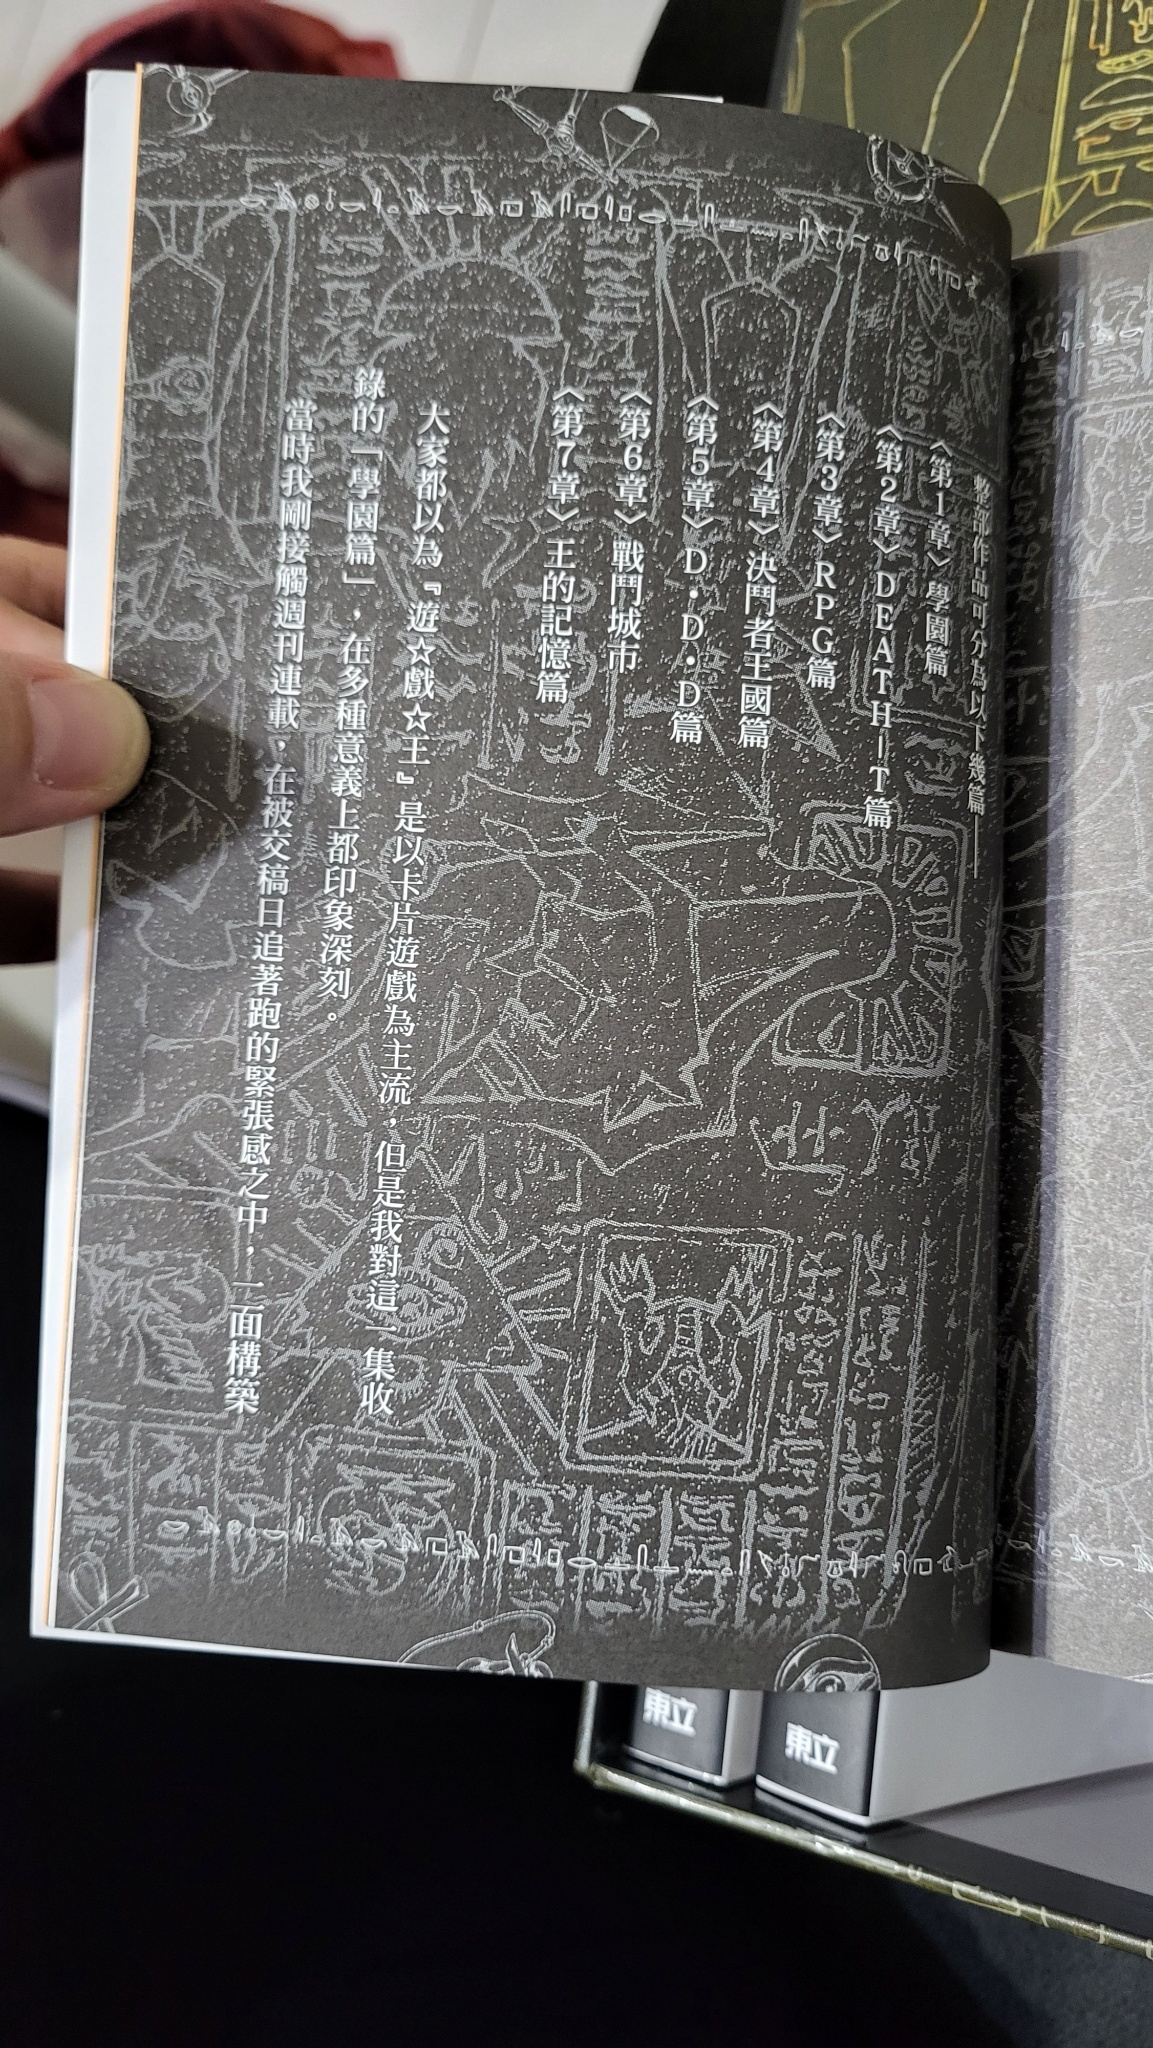 整部作品可分為以下幾篇——
〈第1章〉學園篇
〈第2章〉DEATH－T篇
〈第3章〉RPG篇
〈第4章〉決鬥者王國篇
〈第5章〉D・D・D篇
〈第6章〉戰鬥城市
〈第7章〉王的記憶篇
大家都以為『遊☆戲☆王』是以卡片遊戲為主流，但是我對這一集收
錄的「學園篇」，在多種意義上都印象深刻。
當時我剛接觸週刊連載，在被交稿日追著跑的緊張感之中，一面構築
東立
東立